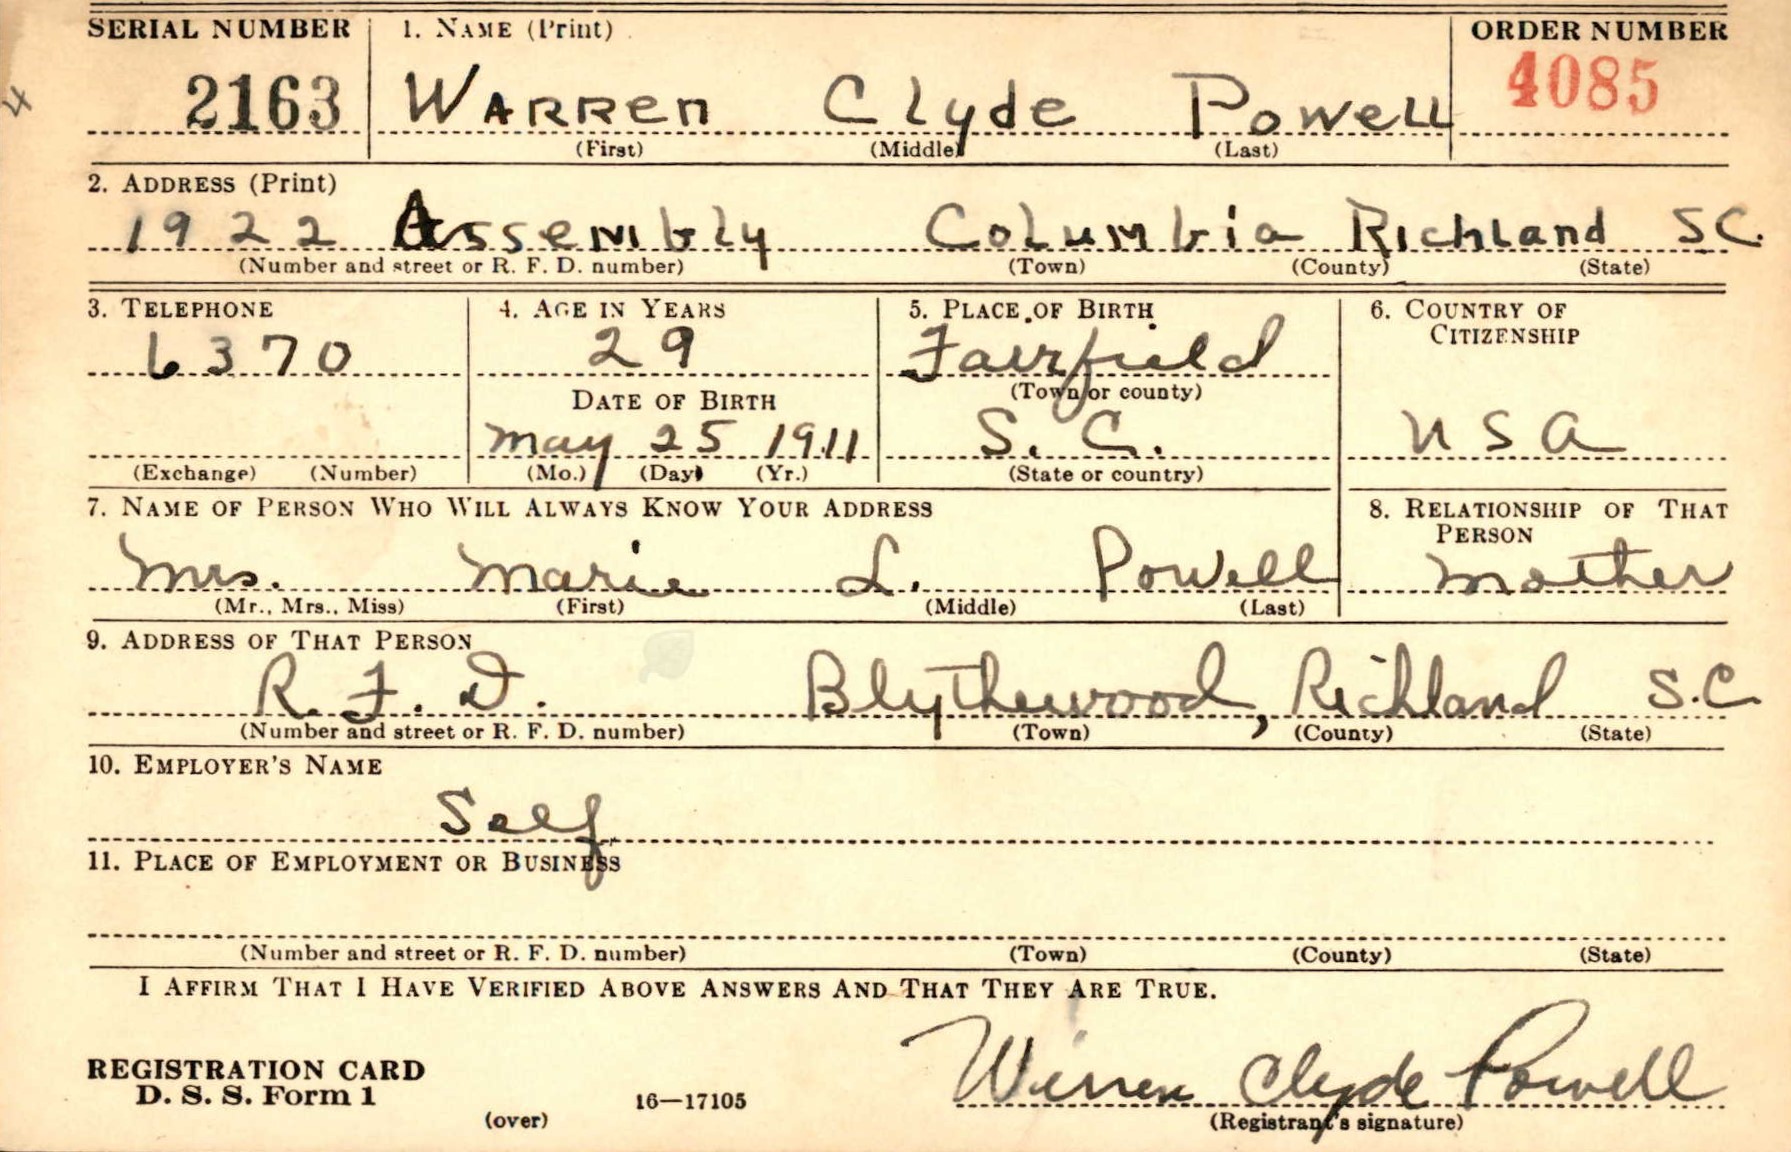 SERIAL NUMBER 1. NAME (Print) ORDER NUMBER
4 2163 WARREN Clyde Powell 4085
(First) (Middle) (Last)
2. ADDRESS (Print)
1922 Assembly Columbia Richland S.C.
(Number and street or R. F. D. number) (Town) (County) (State)
3. TELEPHONE 4. AGE IN YEARS 5. PLACE OF BIRTH 6. COUNTRY OF CITIZENSHIP
6370 29 Fairfield
(Town or county)
DATE OF BIRTH
May 25 1911 S. C. USA
(Exchange) (Number) (Mo.) (Day) (Yr.) (State or country)
7. NAME OF PERSON WHO WILL ALWAYS KNOW YOUR ADDRESS 8. RELATIONSHIP OF THAT PERSON
Mrs. Marie L. Powell Mother
(Mr., Mrs., Miss) (First) (Middle) (Last)
9. ADDRESS OF THAT PERSON
R. F. D. Blythewood, Richland S.C
(Number and street or R. F. D. number) (Town) (County) (State)
10. EMPLOYER'S NAME
Self
11. PLACE OF EMPLOYMENT OR BUSINESS
(Number and street or R. F. D. number) (Town) (County) (State)
I AFFIRM THAT I HAVE VERIFIED ABOVE ANSWERS AND THAT THEY ARE TRUE.
Warren Clyde Powell
REGISTRATION CARD
D. S. S. Form 1
(over) 16—17105 (Registrant's signature)